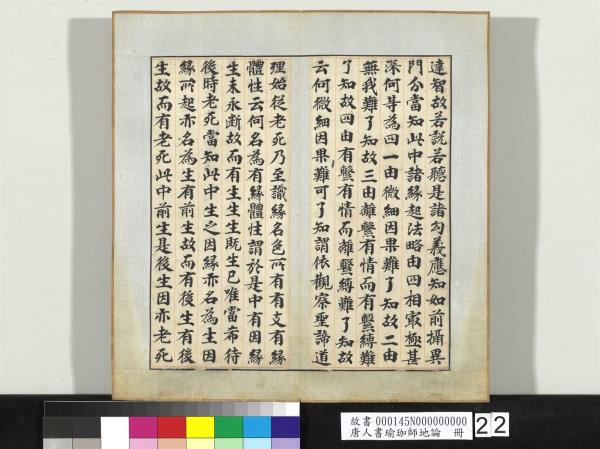 達智故若說若聽是諸句義應知如前攝異
門分當知此中諸緣起法略由四相㝡極甚
深何等為四一由微細因果難了知故二由
無我難了知故三由離繫有情而有繫縛難
了知故四由有繫有情而離繫縛難了知故
云何微細因果難可了知謂依觀察聖諦道
理始從老死乃至識緣名色所有有支有緣
體性云何名為有緣體性謂於是中有因緣
生未永斷故而有生生生既生已唯當希待
後時老死當知此中生之因緣亦名為生因
緣所起亦名為生有前生故而有後生有後
生故而有老死此中前生是後生因亦老死
故書 000145N000000000
唐人書瑜珈師地論 冊
22